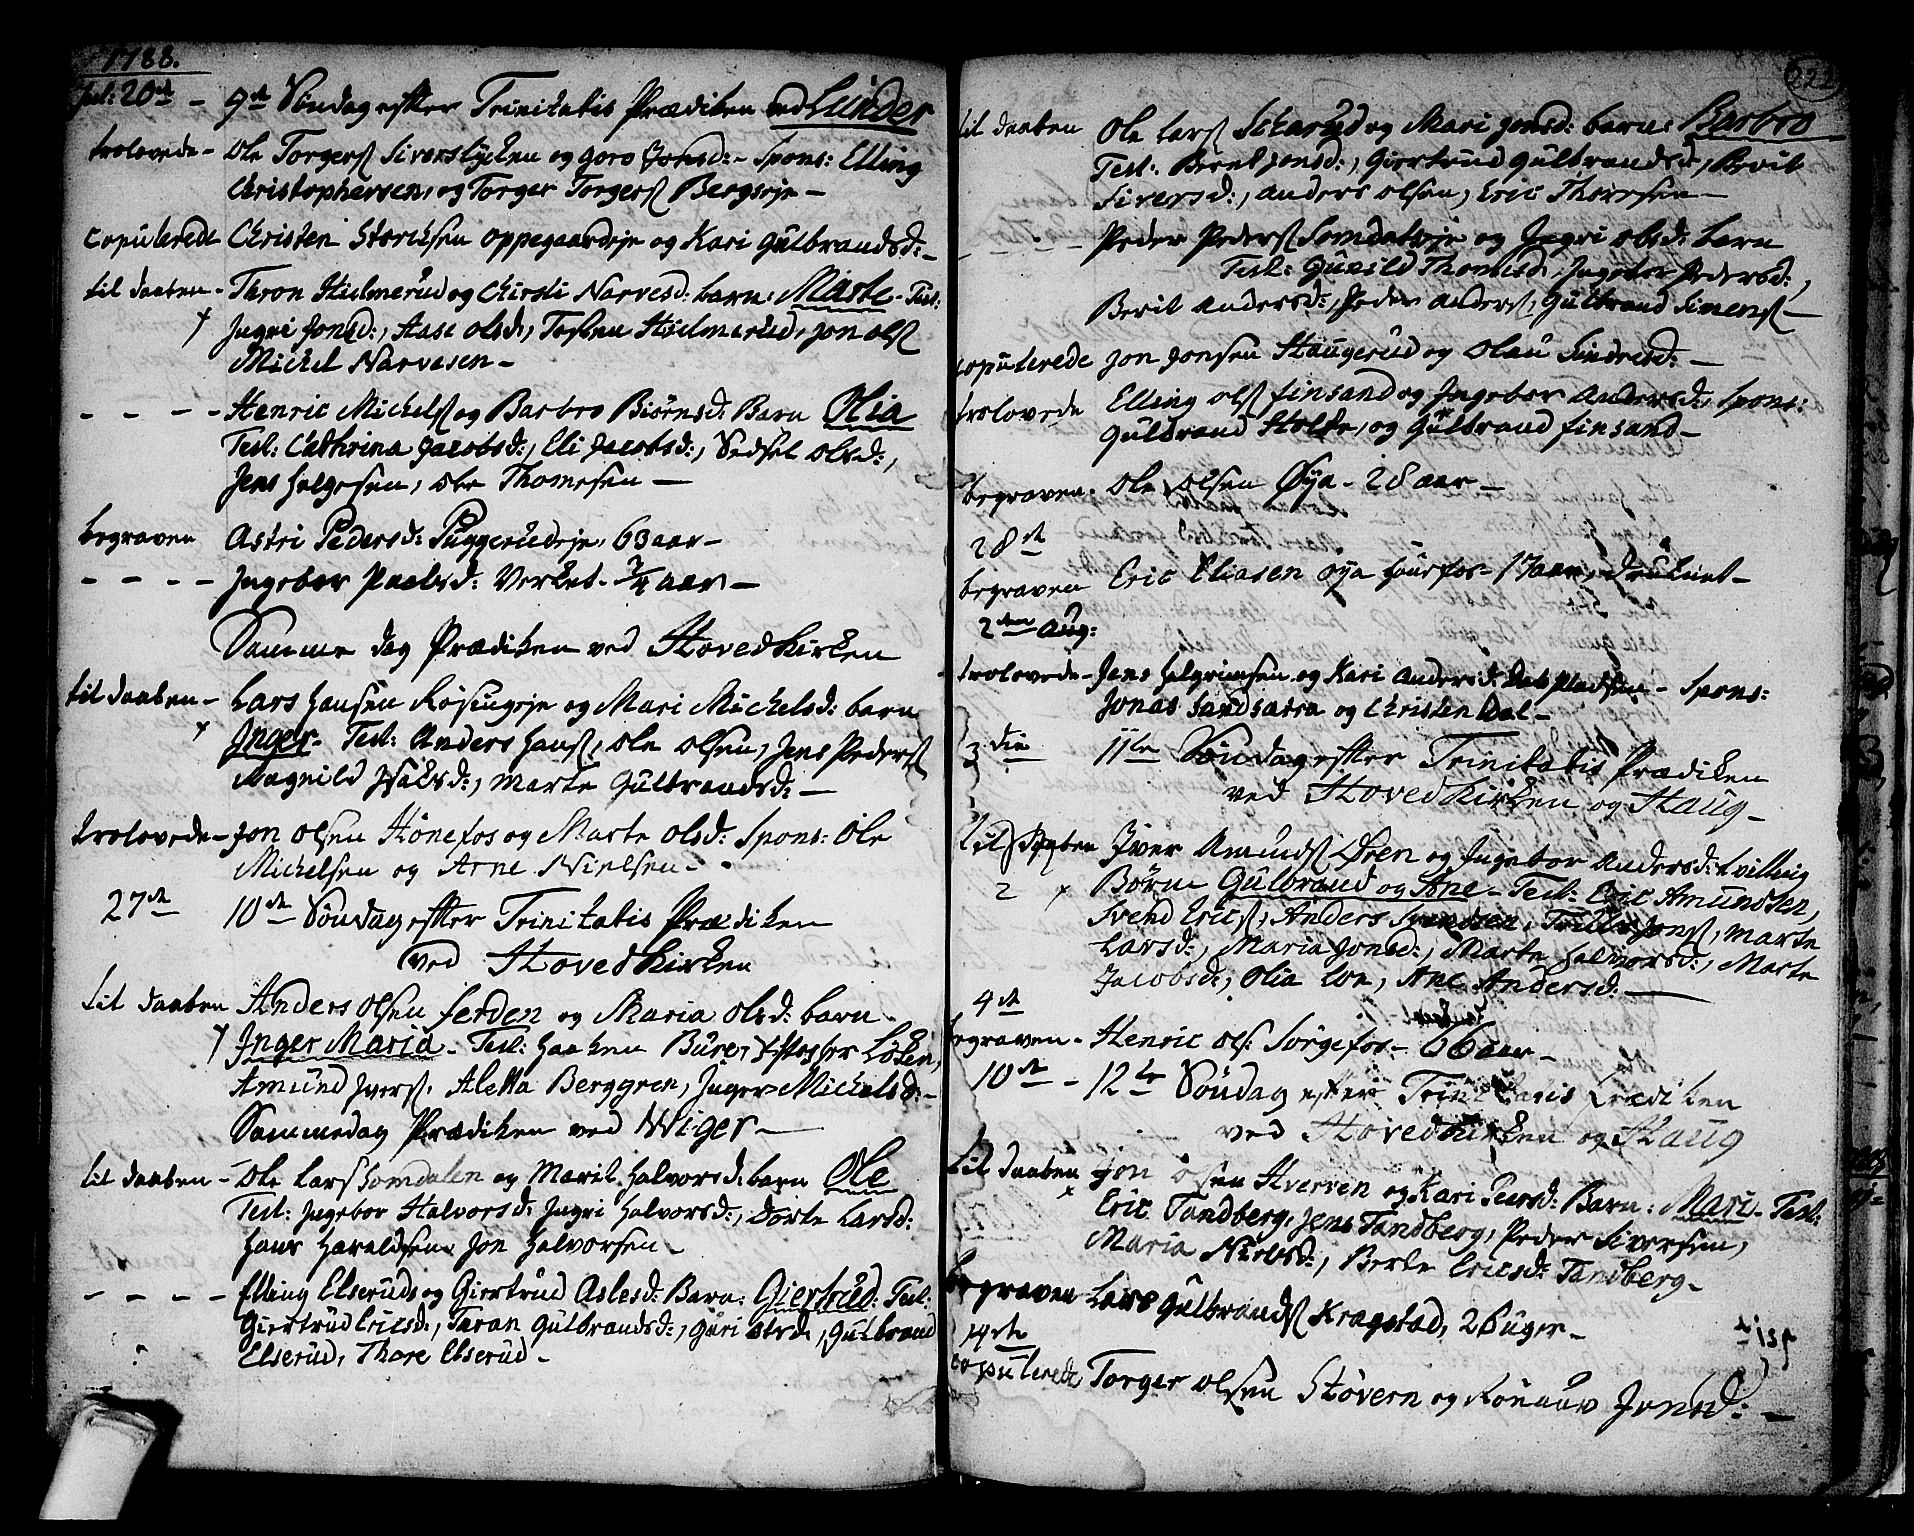 1788.
Jul: 20de - 9de Søndag efter Trinitatis Prædiken ved Lunder
trolovede - Ole Torgers Siverstycken og Goro Jonsd: - Spons: Elling
Christophersen, og Torger Torgers Bergseje -
copulerede Christen Storchsen Oppegaardseje og Kari Gulbrandsd: -
til daaben - Taron Hielmerud og Chirsti Narvesd: barn: Marte - Test:
Ingri Jonsd:, Aase Olsd:, Tosten Hielmerud, Jon Ols
Michel Narvesen -
- - - - Henric Michels og Barbro Biørnsd: Barn Olia
Test: Cathrina Jacobsd:, Eli Jacobsd:, Sidsel Olsd:,
Jens Helgesen, Ole Thomesen -
begraven Astri Pedersd: Puggerudeje, 63 aar -
- - - - Ingebor Paalsd: Verket - 3/4 aar -
Samme dag Prædiken ved Hoved Kirken
til daaben - Lars Hansen Røsingeje og Mari Michelsd: barn
Inger - Test: Anders Hans, Ole Olsen, Jens Peders
Magnild Isaksd:, Marte Gulbrandsd: -
trolovede - Jon Olsen Hønefos og Marte Olsd: Spons: Ole
Michelsen og Arne Nielsen -
27de 10de Søndag efter Trinitatis Prædiken
ved Hoved Kirken
til daaben Anders Olsen Ferden og Maria Olsd: barn
Inger Maria - Test: Haaken Bure, Christopher Løken,
Amund Ivers, Aletta Berggren, Inger Michelsd: -
Sammedag Prædiken ved Wiger -
til daaben - Ole Lars Somdalen og Marit Halvorsd: barn Ole
Test: Ingebor Halvorsd: Ingri Halvorsd:, Dorte Larsd:
Hans Haraldsen Jon Halvorsen -
- - - - Elling Elserud og Giertrud Aslesd: Barn: Giertrud: Test:
Giertrud Ericsd:, Taran Gulbrandsd:, Guri Olsd:, Gulbrand
Elserud, Thore Elserud -
222
til daaben Ole Lars Scharud og Mari Jonsd: barn: Barbro
Test: Berit Jonsd:, Giertrud Gulbrandsd, Berit
Siversd:, Anders Olsen, Eric Thorsen -
- - Peder Peders Somdalseje og Ingri Olsd: barn
Test: Gunild Thomesd, Ingebor Pedersd:,
Berit Andersd:, Peder Anders, Gulbrand Simens -
copulerede Jon Jonsen Haugerud og Olau Sindresd: -
trolovede Elling Ols Finsand og Ingebor Andersd:, Spons:
Gulbrand Holte, og Gulbrand Finsand -
begraven Ole Olsen Øya - 28 aar -
28de
begraven Eric Eliasen Øya Hønefos - 17 aar, druknet -
2den Aug:
trolovede - Jens Helgrimsen og Kari Andersd: Dal Pladsen - Spons:
Jonas Sandsætra og Christen Dal -
3die 11te Søndag efter Trinitatis Prædiken
ved Hoved Kirken og Haug -
til Daaben Iver Amunds Øren og Ingebor Andersd: tvilling
2 Børn Gulbrand og Ane - Test: Eric Amundsen,
Svend Erics, Anders Svendsen, Truls Jons, Marte
Larsd:, Maria Jonsd:, Marte Halvorsd:, Marte
Jacobsd:, Olia Loe, Ane Andersd: -
4de
begraven - Henric Ols: Sørgefos - 66 aar -
10de - 12te Søndag efter Trinitatis Prædiken
ved Hoved Kirken og Haug
til daaben Jon Olsen Hverven og Kari Peersd: Barn: Mari - Test:
Eric Tandberg, Jens Tandberg, Peder Siversen,
Maria Nielsd:, Berte Ericsd: Tandberg -
begraven Lars Gulbrands Kragstad, 2 Buger -
14de
copulerede Torger Olsen Støvern og Rønnau Jonsd: -